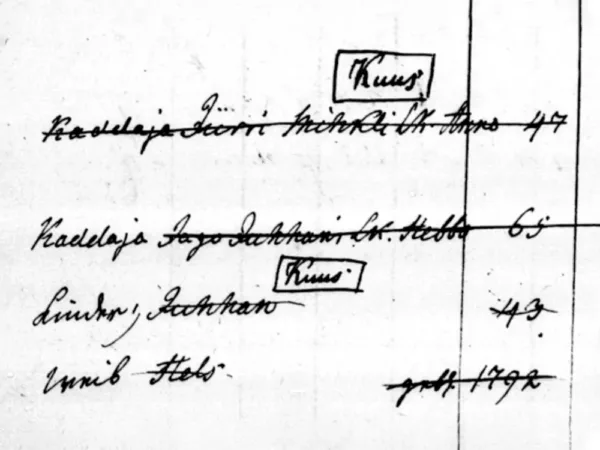 Kuus
Kaddaja Jürri Mihkli Lk. Anno 47
Kaddaja Jago Juhhani Lk. Hebbo 65
Kuus
Linder, Juhhan 43
weib Hels 1792